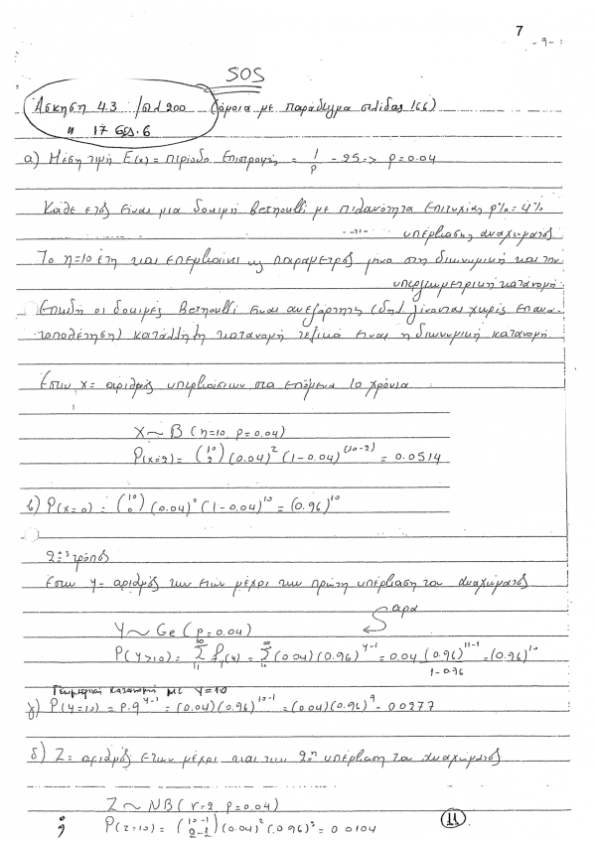 7
-9-
SOS
Άσκηση 4.3 /σελ 200 (όμοια με παράδειγμα σελίδας 166)
" 17 εβδ. 6
α) Μέση τιμή E(x) = περίοδο επιστροφής = 1/p = 25 => p=0.04
Κάθε έτος είναι μια δοκιμή Bernoulli με πιθανότητα επιτυχίας p%=4%
υπέρβασης αναχώματος
Το n=10 έτη και επεμβαίνει ως παράμετρος μόνο στη διωνυμική και την
υπεργεωμετρική κατανομή
Επειδή οι δοκιμές Bernoulli είναι ανεξάρτητες (δηλ γίνονται χωρίς επανα-
τοποθέτηση) κατάλληλη κατανομή τελικά είναι η διωνυμική κατανομή
Έστω x = αριθμός υπερβάσεων στα επόμενα 10 χρόνια
X ~ B (n=10, p=0.04)
P(x=2) = (10 2) (0.04)^2 (1-0.04)^(10-2) = 0.0514
β) P(x=0) = (10 0) (0.04)^0 (1-0.04)^10 = (0.96)^10
2ος τρόπος
Έστω y = αριθμός των ετών μέχρι την πρώτη υπέρβαση του αναχώματος
άρα
Y ~ Ge (p=0.04)
P(y>10) = Σ f_y(y) = Σ (0.04)(0.96)^y-1 = 0.04 (0.96)^11-1 / 1-0.96 = (0.96)^10
Γεωμετρική κατανομή με y=10
γ) P(y=10) = p·q^y-1 = (0.04)(0.96)^10-1 = (0.04)(0.96)^9 = 0.0277
δ) Z = αριθμός ετών μέχρι και την 2η υπέρβαση του αναχώματος
Z ~ NB (r=2, p=0.04)
P(z=10) = (10-1 2-1) (0.04)^2 (0.96)^8 = 0.0104
11